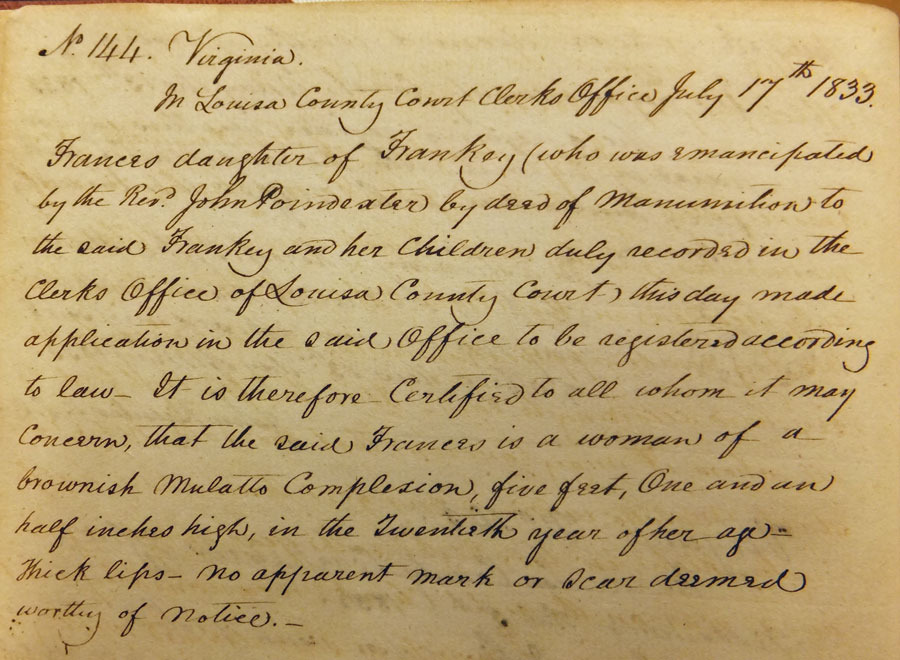 No. 144. Virginia.
In Louisa County Court Clerks Office July 17th 1833.
Frances daughter of Frankey (who was emancipated
by the Revd. John Poindexter by deed of Manumition to
the said Frankey and her Children duly recorded in the
Clerks Office of Louisa County Court) this day made
application in the said Office to be registered according
to law – It is therefore Certified to all whom it may
Concern, that the said Frances is a woman of a
brownish Mulatto Complexion, five feet, One and an
half inches high, in the Twentieth year of her age –
thick lips – no apparent mark or scar deemed
worthy of notice. –